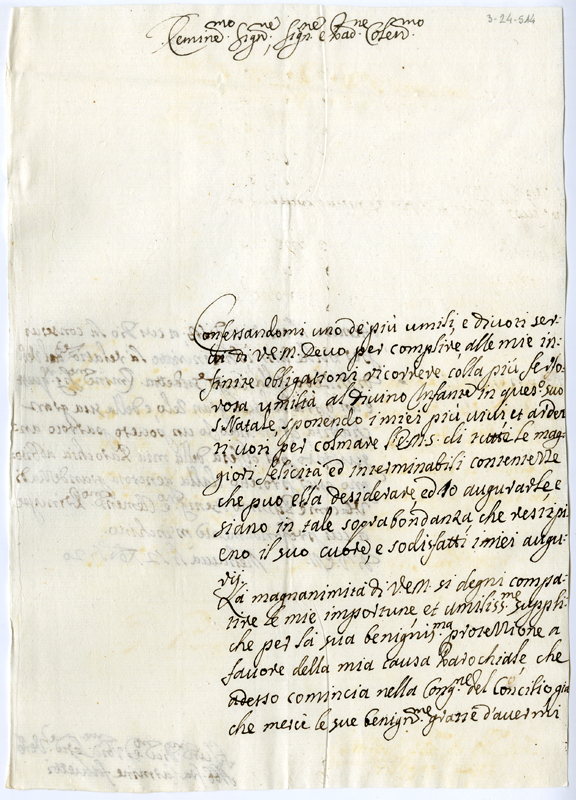 3-24-514
Emine.mo Sign.re, Sign.re e Pad.ne Colen.mo
Confessandomi uno de più umili, e divoti ser-
di V. Em. Devo per complire, alle mie in-
finite obligationi ricorrere colla più fervo-
rosa umiltà al Divino Infante in ques.o suo
S. Natale, sponendo i miei più vivi et arden
ti voti, per colmare l'E.V. di tutte le mag-
giori felicità ed interminabili contentezze
che può ella desiderare, ed Io augurarle e
siano in tale soprabondanza, che resti pi-
eno il suo cuore, e sodisfatti i miei augu-
rij.
La magnanimità di V. Em. si degni compa-
tire le mie importune, et umiliss.me suppli-
che per la sua benignis.ma protettione a
favore della mia causa Parochiale, che
adesso comincia nella Cong.ne del Concilio gia
che mercè le sue benign.me grazie d'avermi